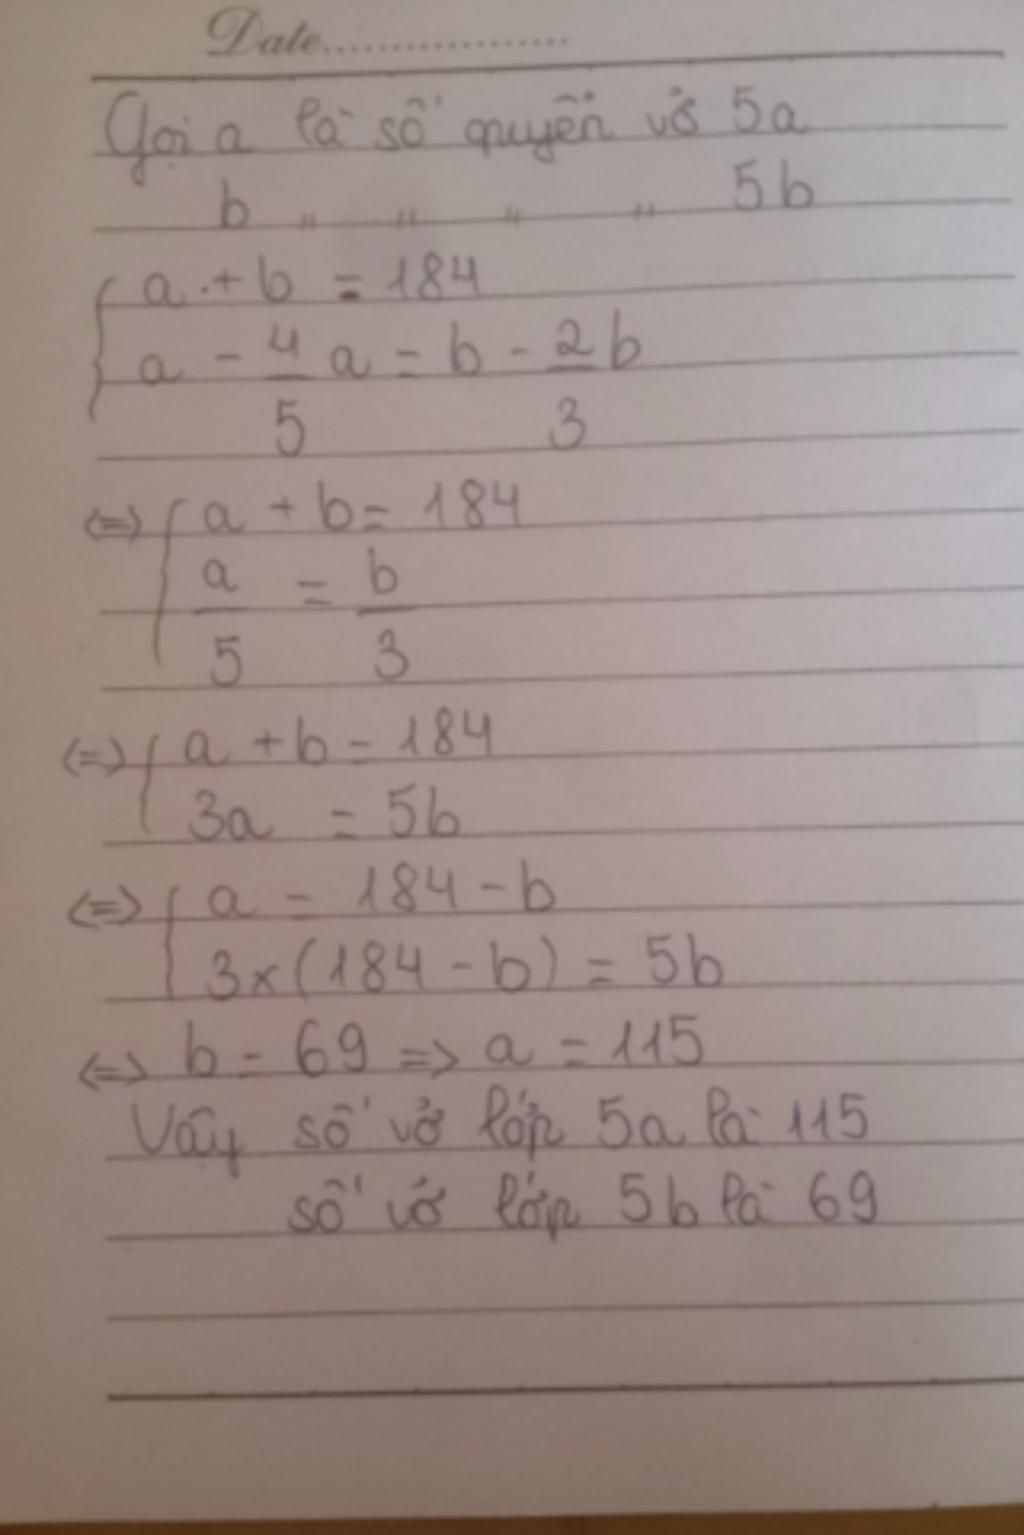 Date..................
Gọi a là số quyển vở 5a
b " " " " 5b
{ a + b = 184
a - 4/5 a = b - 2/3 b
<=> { a + b = 184
a/5 = b/3
<=> { a + b = 184
3a = 5b
<=> { a = 184 - b
3x(184 - b) = 5b
<=> b = 69 => a = 115
Vậy số vở lớp 5a là 115
số vở lớp 5b là 69